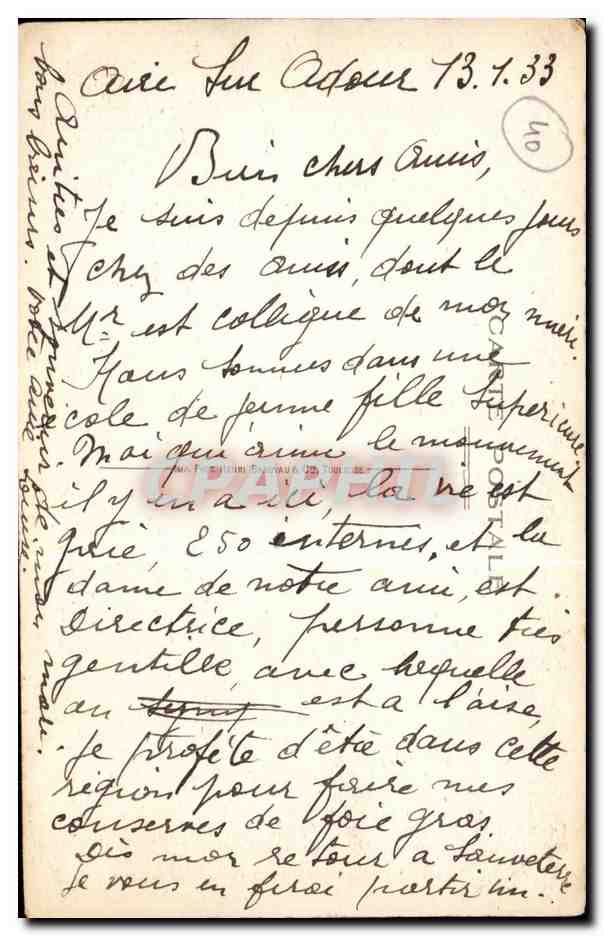 Aire Sur Adour 13.1.33
40
Bien chers Amis,
Je suis depuis quelques jours
chez des amis, dont le
Mr est collègue de mon mari.
Nous sommes dans une
cole de jeune fille Superieure
. Moi qui aime le mouvement
il y en a ici, la vie est
gaie, 250 internes, et la
dame de notre ami, est
Directrice, personne très
gentille, avec laquelle
on est a l'aise,
je profite d'être dans cette
région pour faire mes
conserves de foie gras
Dès mon retour a Sauveterre
je vous en ferai partir un..
Amitiés et souvenir de mon mari.
Bons baisers. Votre amie
CARTE POSTALE
CPAPHIL